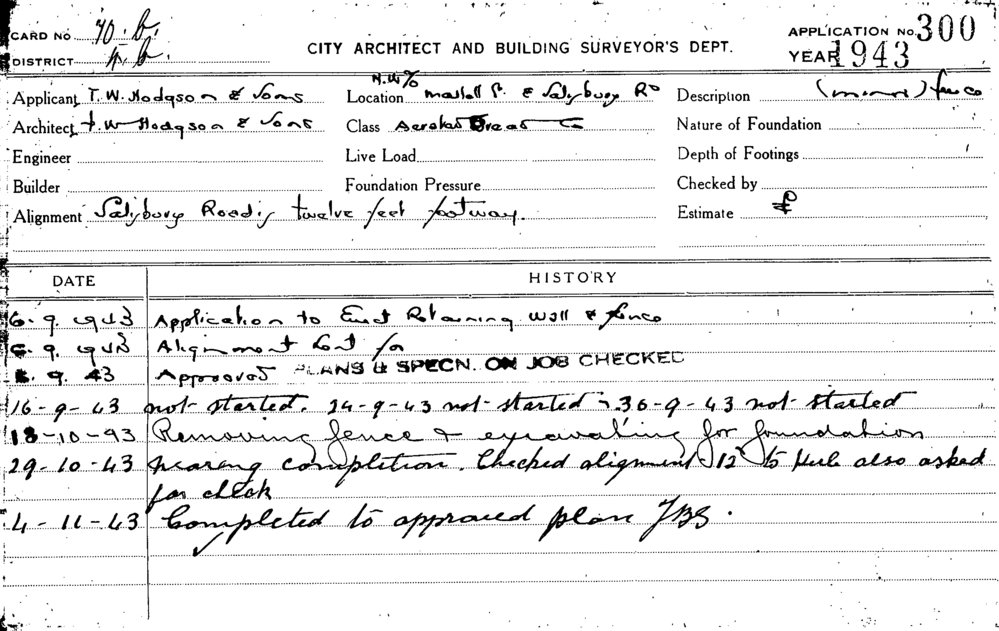 CARD No 70.b.
DISTRICT
CITY ARCHITECT AND BUILDING SURVEYOR'S DEPT.
APPLICATION No. 300
YEAR 1943
Applicant T. W. Hodgson & Sons
Location N.W./c St. & Salisbury Rd
Description (minor) fence
Architect T. W Hodgson & Sons
Class
Nature of Foundation
Engineer
Live Load
Depth of Footings
Builder
Foundation Pressure
Checked by
Alignment Salisbury Road is twelve feet footway.
Estimate £
DATE HISTORY
6. 9. 1943 Application to Erect Retaining Wall & fence
6. 9. 1943 Alignment for
9. 43 Approved PLANS & SPECN. ON JOB CHECKED
16-9-43 not started. 24-9-43 not started. 30-9-43 not started
18-10-43 Removing fence & excavating for foundation
29-10-43 nearing completion. Checked alignment 12' to also asked
for check
4-11-43 Completed to approved plan JBS.